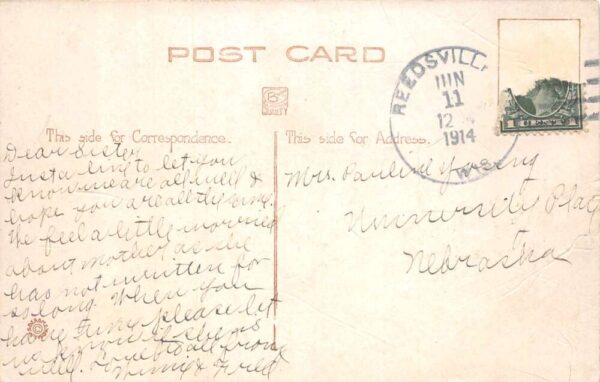 POST CARD
REEDSVILLE
JUN
11
12
1914
WIS.
1 CENT 1
This side for Correspondence.
This side for Address.
Dear Sister,
Just a line to let you
know we are all well &
hope you are all the same.
We feel a little worried
about mother as she
has not written for
so long. When you
have time please let
us know if she is
well. Love to all from
& Fred.
Mrs. Pauline Young
University Place
Nebraska